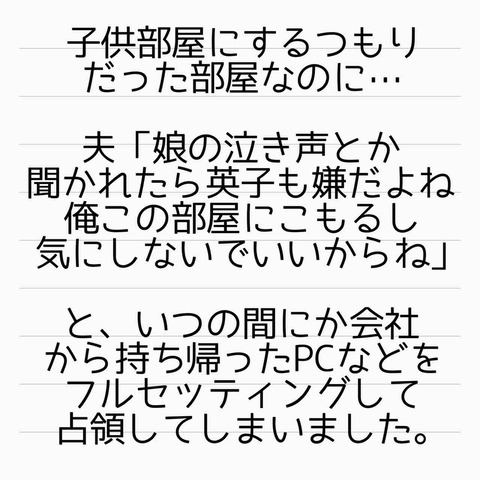 子供部屋にするつもり
だった部屋なのに…
夫「娘の泣き声とか
聞かれたら英子も嫌だよね
俺この部屋にこもるし
気にしないでいいからね」
と、いつの間にか会社
から持ち帰ったPCなどを
フルセッティングして
占領してしまいました。